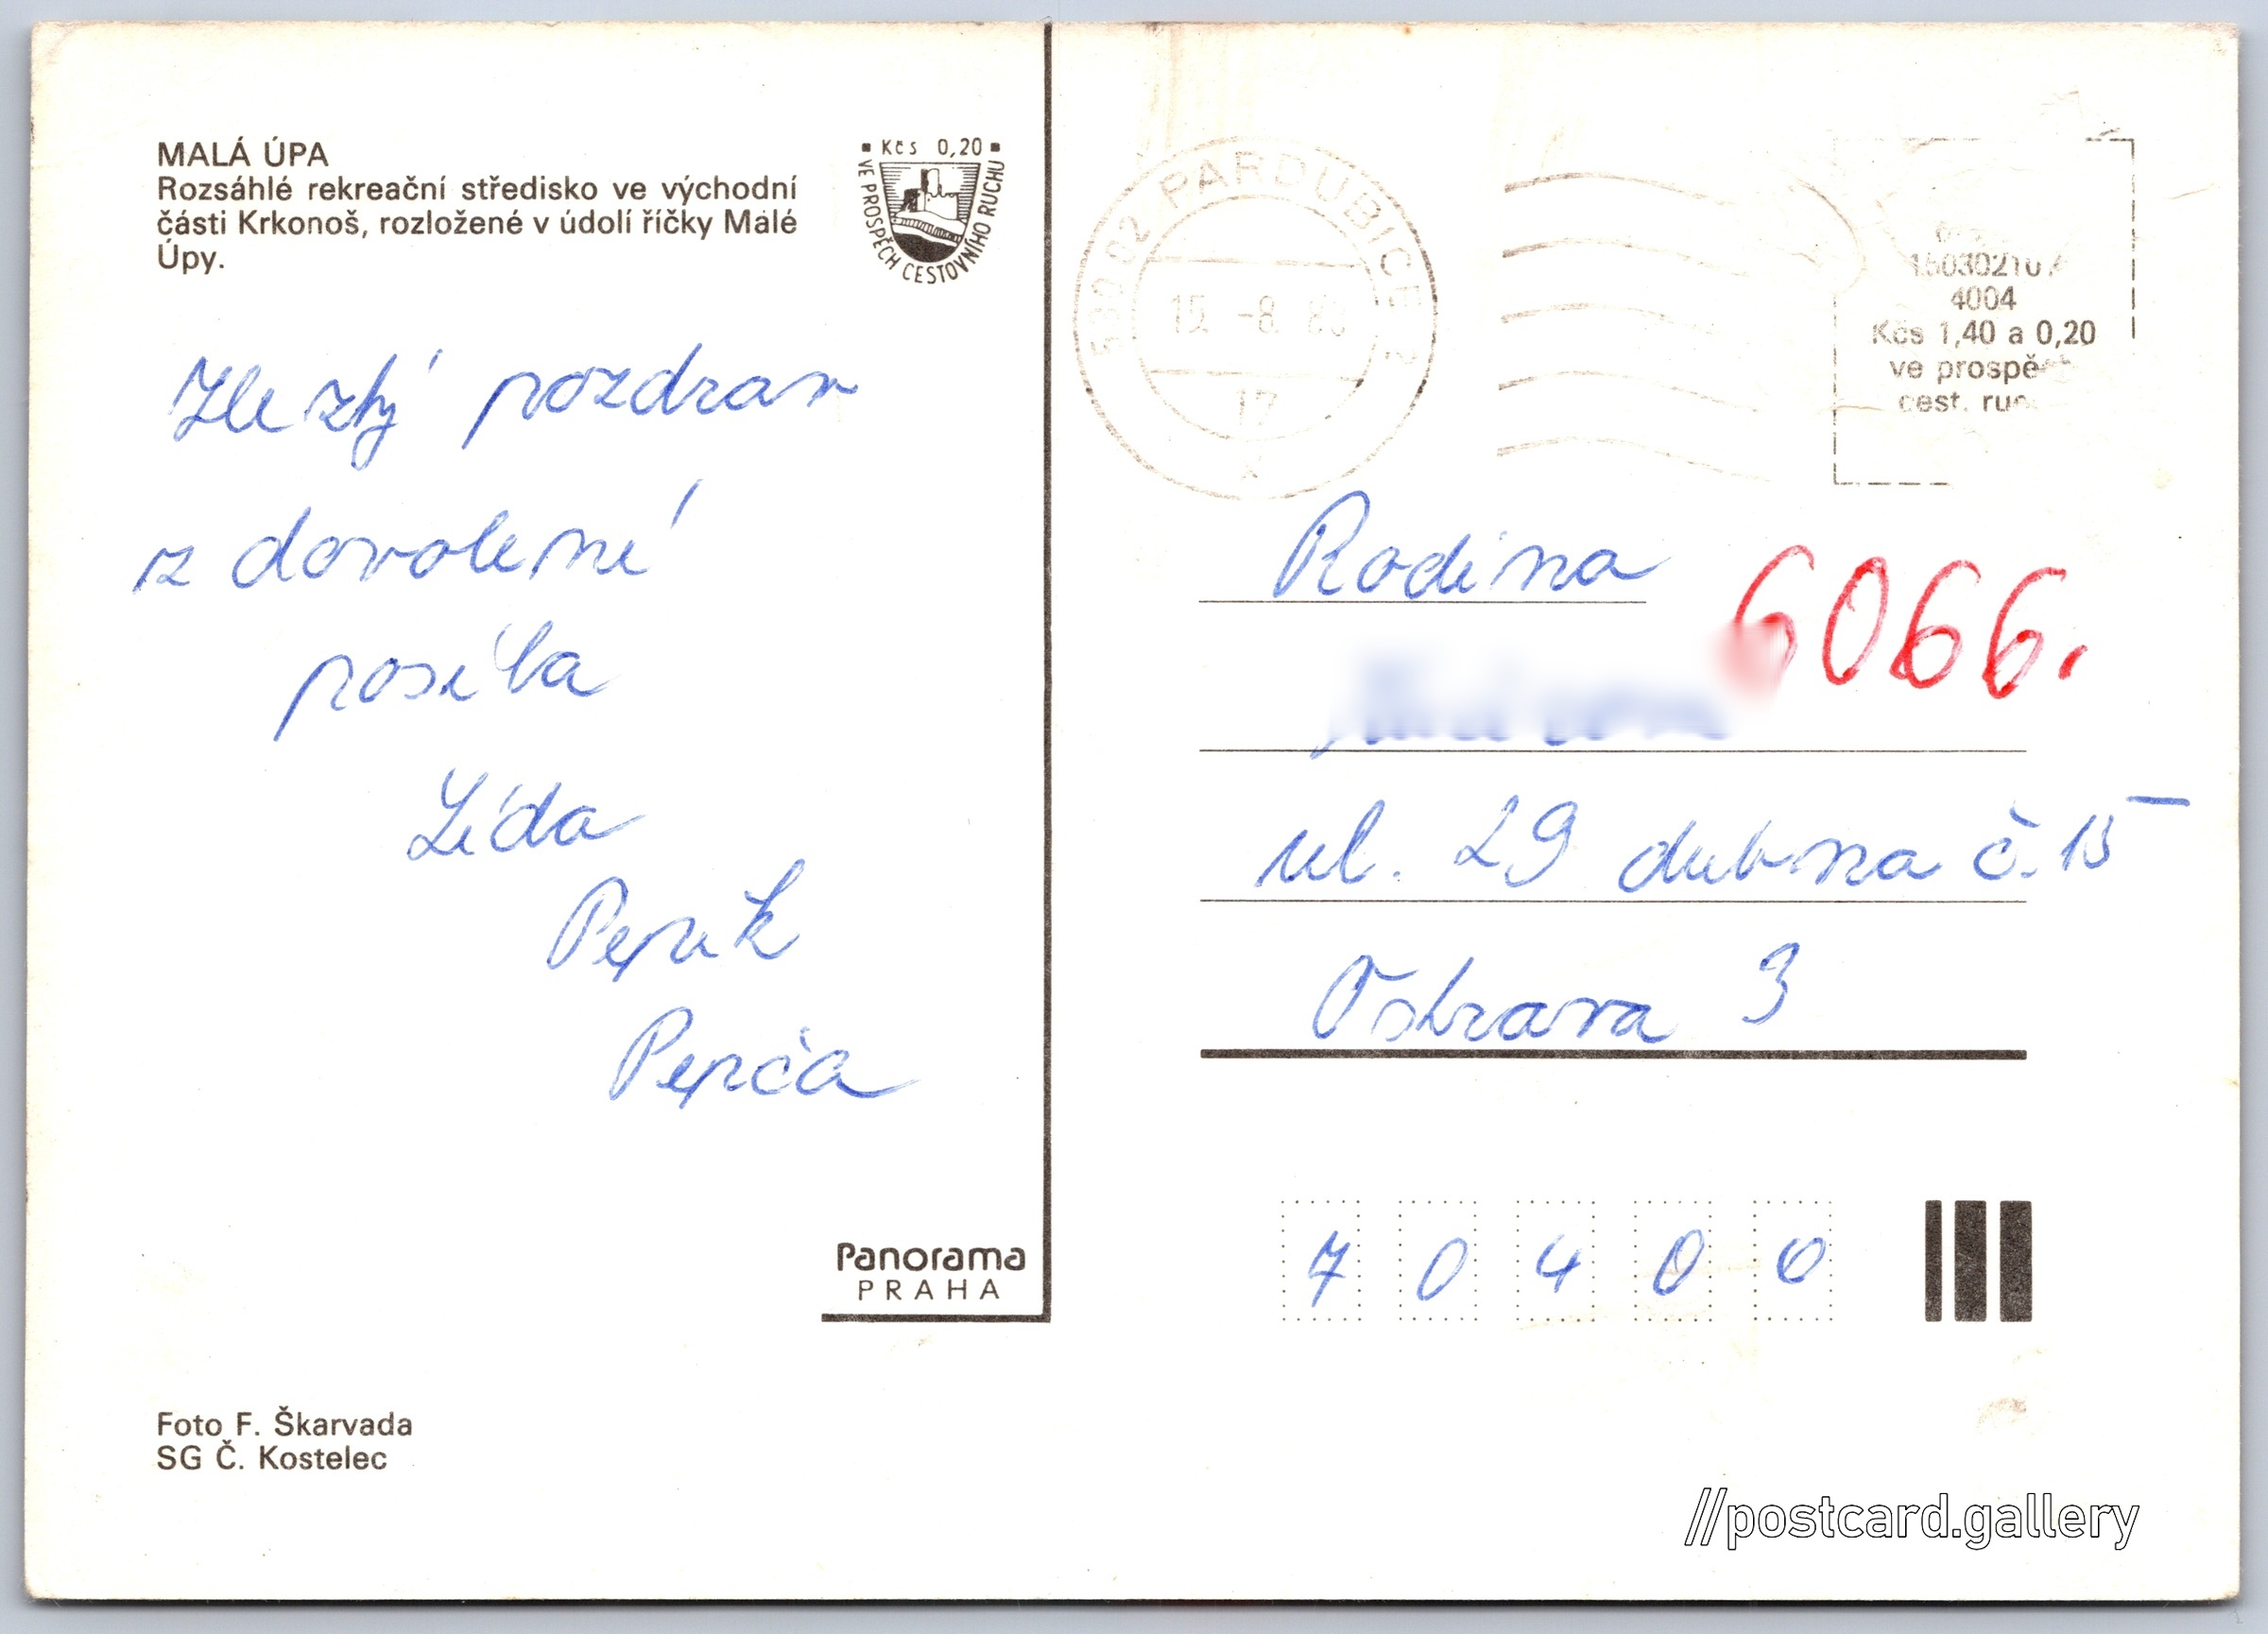 MALÁ ÚPA
Rozsáhlé rekreační středisko ve východní
části Krkonoš, rozložené v údolí říčky Malé
Úpy.
Kčs 0,20
VE PROSPĚCH CESTOVNÍHO RUCHU
Hezký pozdrav
z dovolené
posílá
Lída
Pepík
Pepča
Panorama
PRAHA
Foto F. Škarvada
SG Č. Kostelec
PARDUBICE 2
15. -8.
17
4004
Kčs 1,40 a 0,20
ve
cest.
Rodina
6066.
ul. 29 dubna č. 15
Ostrava 3
7 0 4 0 0
//postcard.gallery